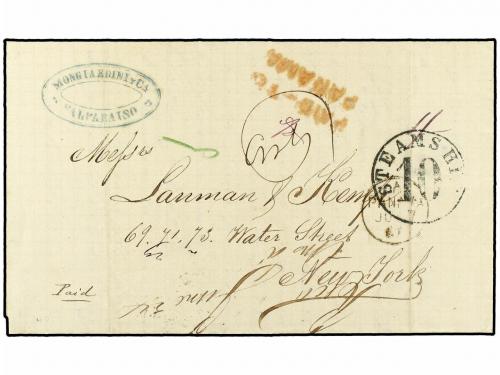 MONGIARDINI Y CA.
VALPARAISO
PANAMA
STEAMSHIP
10
PANAMA
Messrs
Lanman & Kemp
69. 71. 73. Water Street
New York
Paid